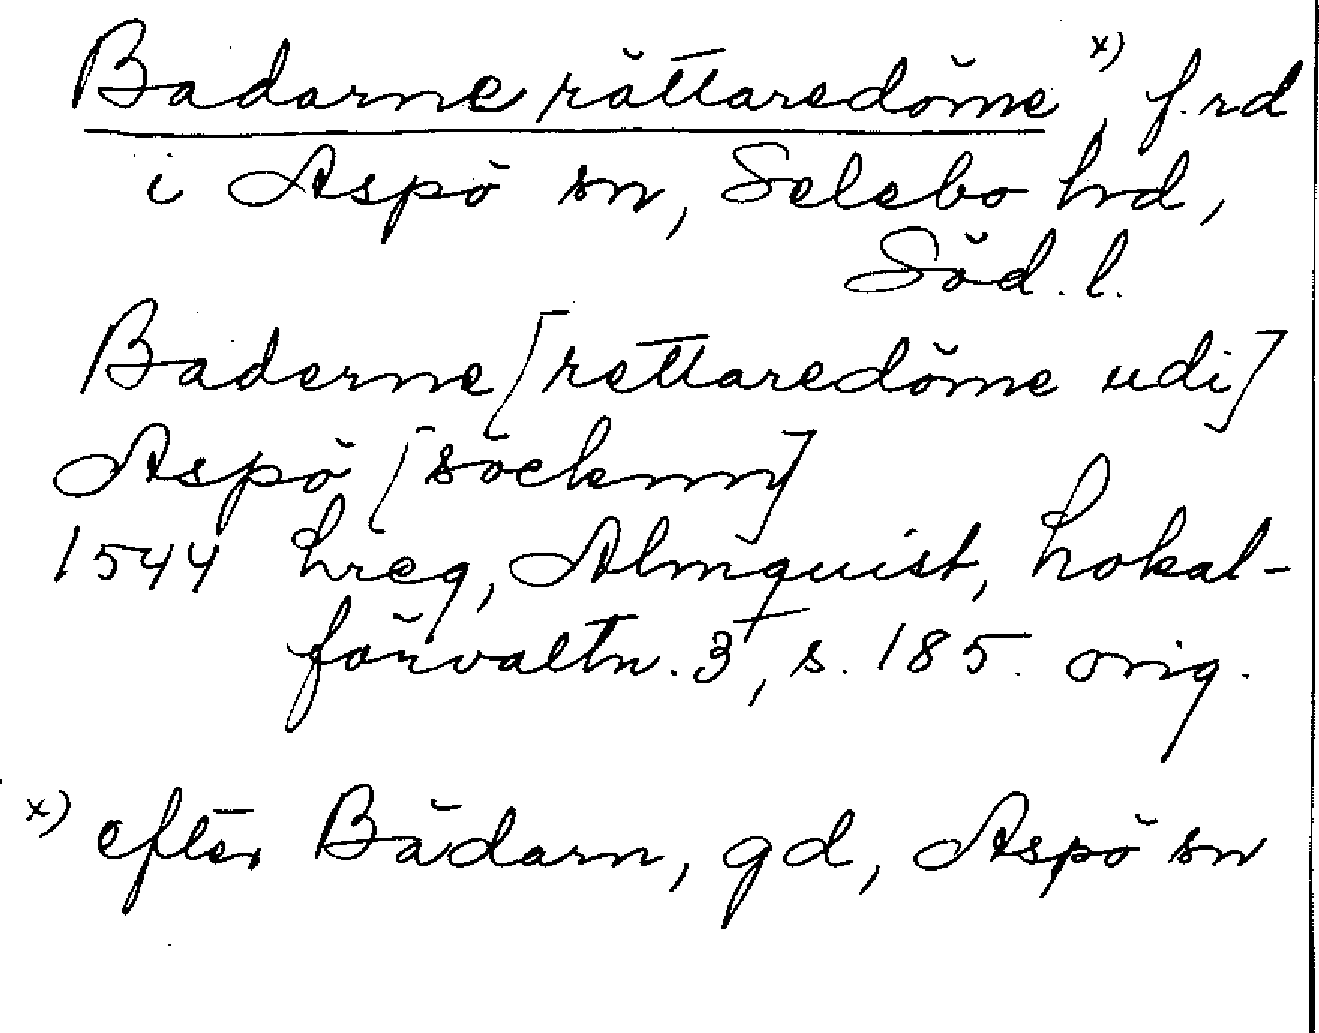 Badarne rättaredöme x), f.rd
i Aspö sn, Selebo hrd,
Söd. l.
Baderne [rettaredöme udi]
Aspö [söcknn]
1544 hreg, Almquist, Lokal-
förvaltn. 3, s. 185. orig.
x) efter Bädarn, gd, Aspö sn